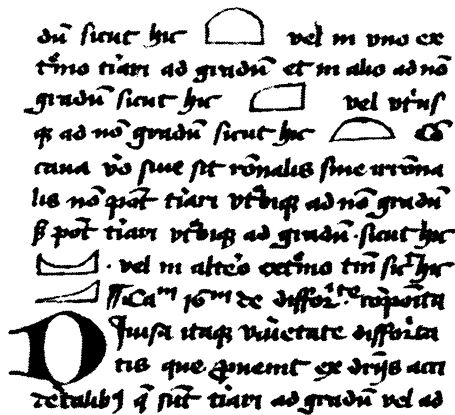 dũ sicut hic vel in vno ex
tᵒmo tiari ad gradũ et in alio ad nõ
gradũ sicut hic vel vtꝰusꝫ
qꝫ ad nõ gradũ sicut hic Cõ
caua vᵒo siue sit rõnalis siue irrõna
lis nõ pot̃ tiari vtᵒbiqꝫ ad nõ gradũ
ꝫ pot̃ tiari vtᵒbiqꝫ ad gradũ. sicut hic
. vel in alteᵒo extᵒmo tm̃ sic̃ hic
¶ Caᵐ 16ᵐ de differ. te cõposita
Diuisa itaqꝫ varietate difformita
tis que ꝓuenit ex dr̃ijs acci
dẽtalibꝫ q̃ sũt tiari ad gradũ vel ad